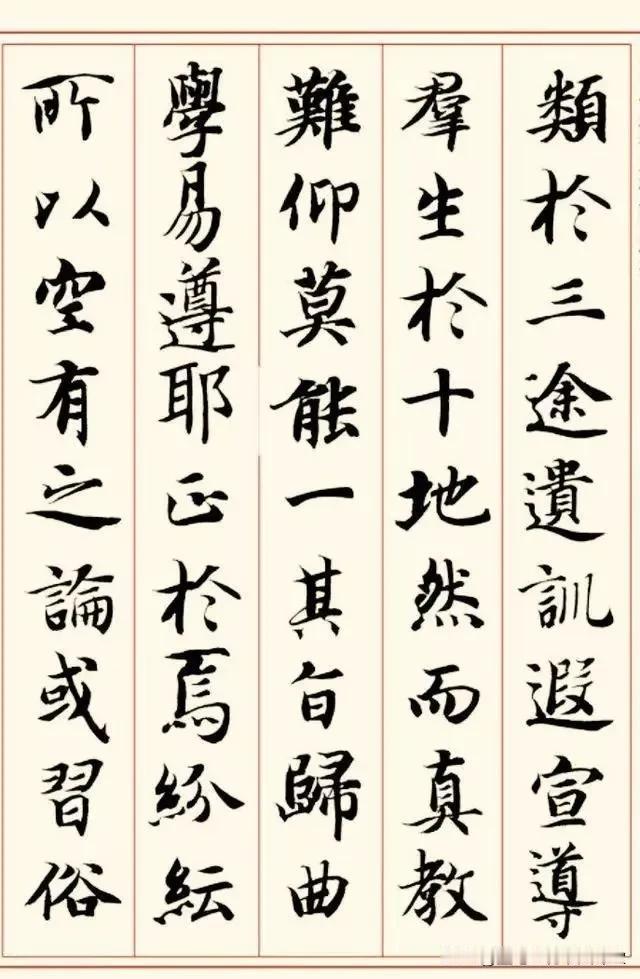 類於三途遺訓遐宣導
羣生於十地然而真教
難仰莫能一其旨歸曲
學易遵耶正於焉紛紜
所以空有之論或習俗